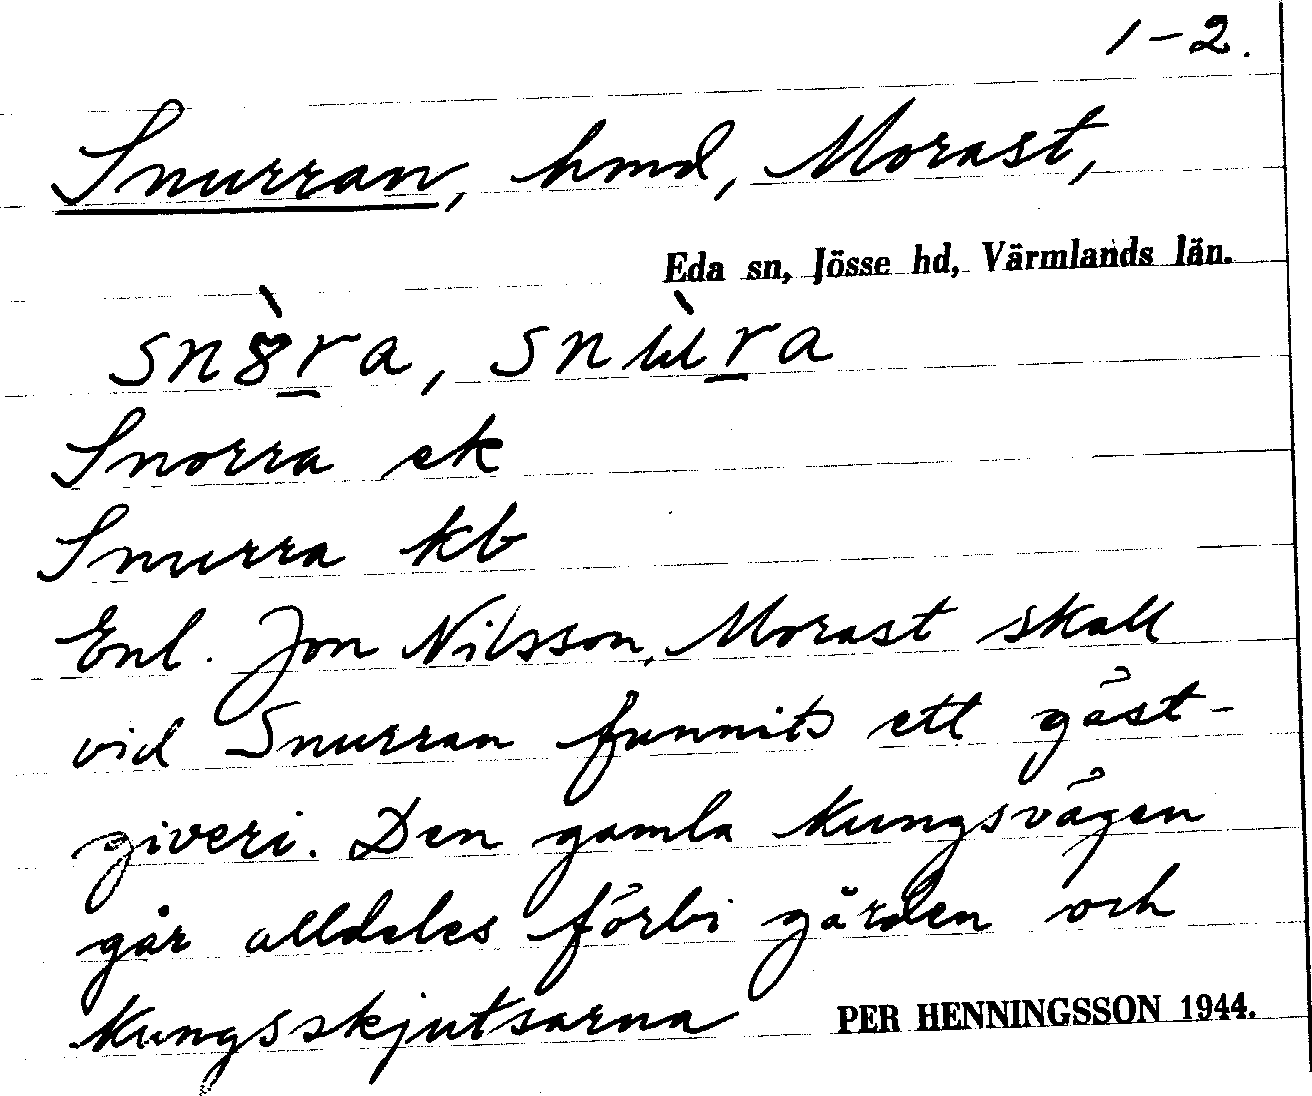 1-2.
Snurran, hmd, Morast,
Eda sn, Jösse hd, Värmlands län.
Snorra ek
Snurra kb
Enl. Jon Nilsson, Morast skall
vid Snurran funnits ett gäst-
giveri. Den gamla Kungsvägen
går alldeles förbi gården och
Kungsskjutsarna
PER HENNINGSSON 1944.